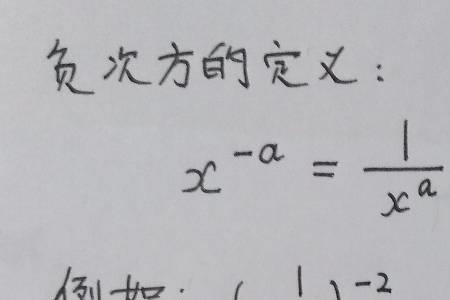 负次方的定义：
x^{-a} = \frac{1}{x^a}
例如：( 1 )^{-2}